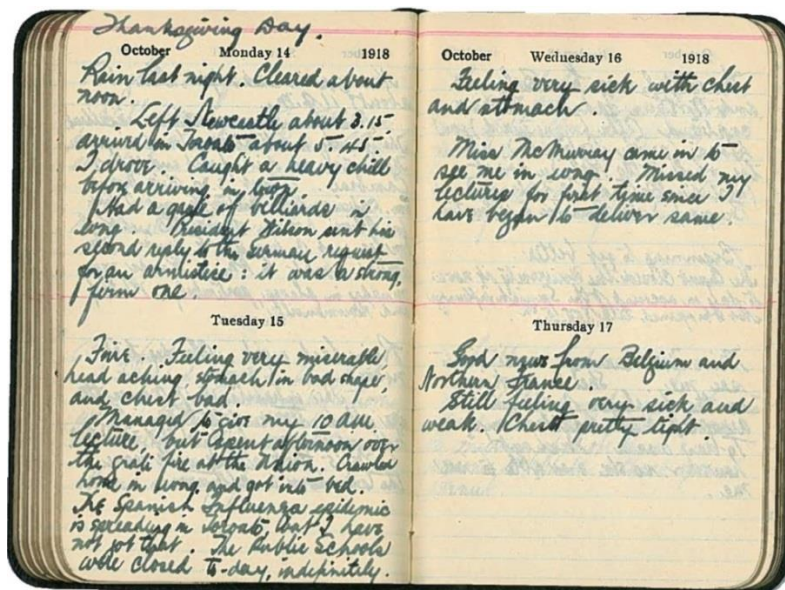 Thanksgiving Day.
October Monday 14 1918
Rain last night. Cleared about
noon.
Left Newcastle about 3.15
arrived in Toronto about 5.45.
I drove. Caught a heavy chill
before arriving in town.
Had a game of billiards in
evng. President Wilson sent his
second reply to the German request
for an armistice: it was a strong,
firm one.
Tuesday 15
Fine. Feeling very miserable,
head aching, stomach in bad shape,
and chest bad.
Managed to give my 10 a.m.
lecture, but spent afternoon over
the grate fire at the Union. Crawled
home in evng and got into bed.
The Spanish Influenza epidemic
is spreading in Toronto, but I have
not got that. The Public Schools
were closed to-day, indefinitely.
October Wednesday 16 1918
Feeling very sick with chest
and stomach.
Miss McMurray came in to
see me in evng. Missed my
lectures for first time since I
have began to deliver same.
Thursday 17
Good news from Belgium and
Northern France
Still feeling very sick and
weak. Chest pretty tight.